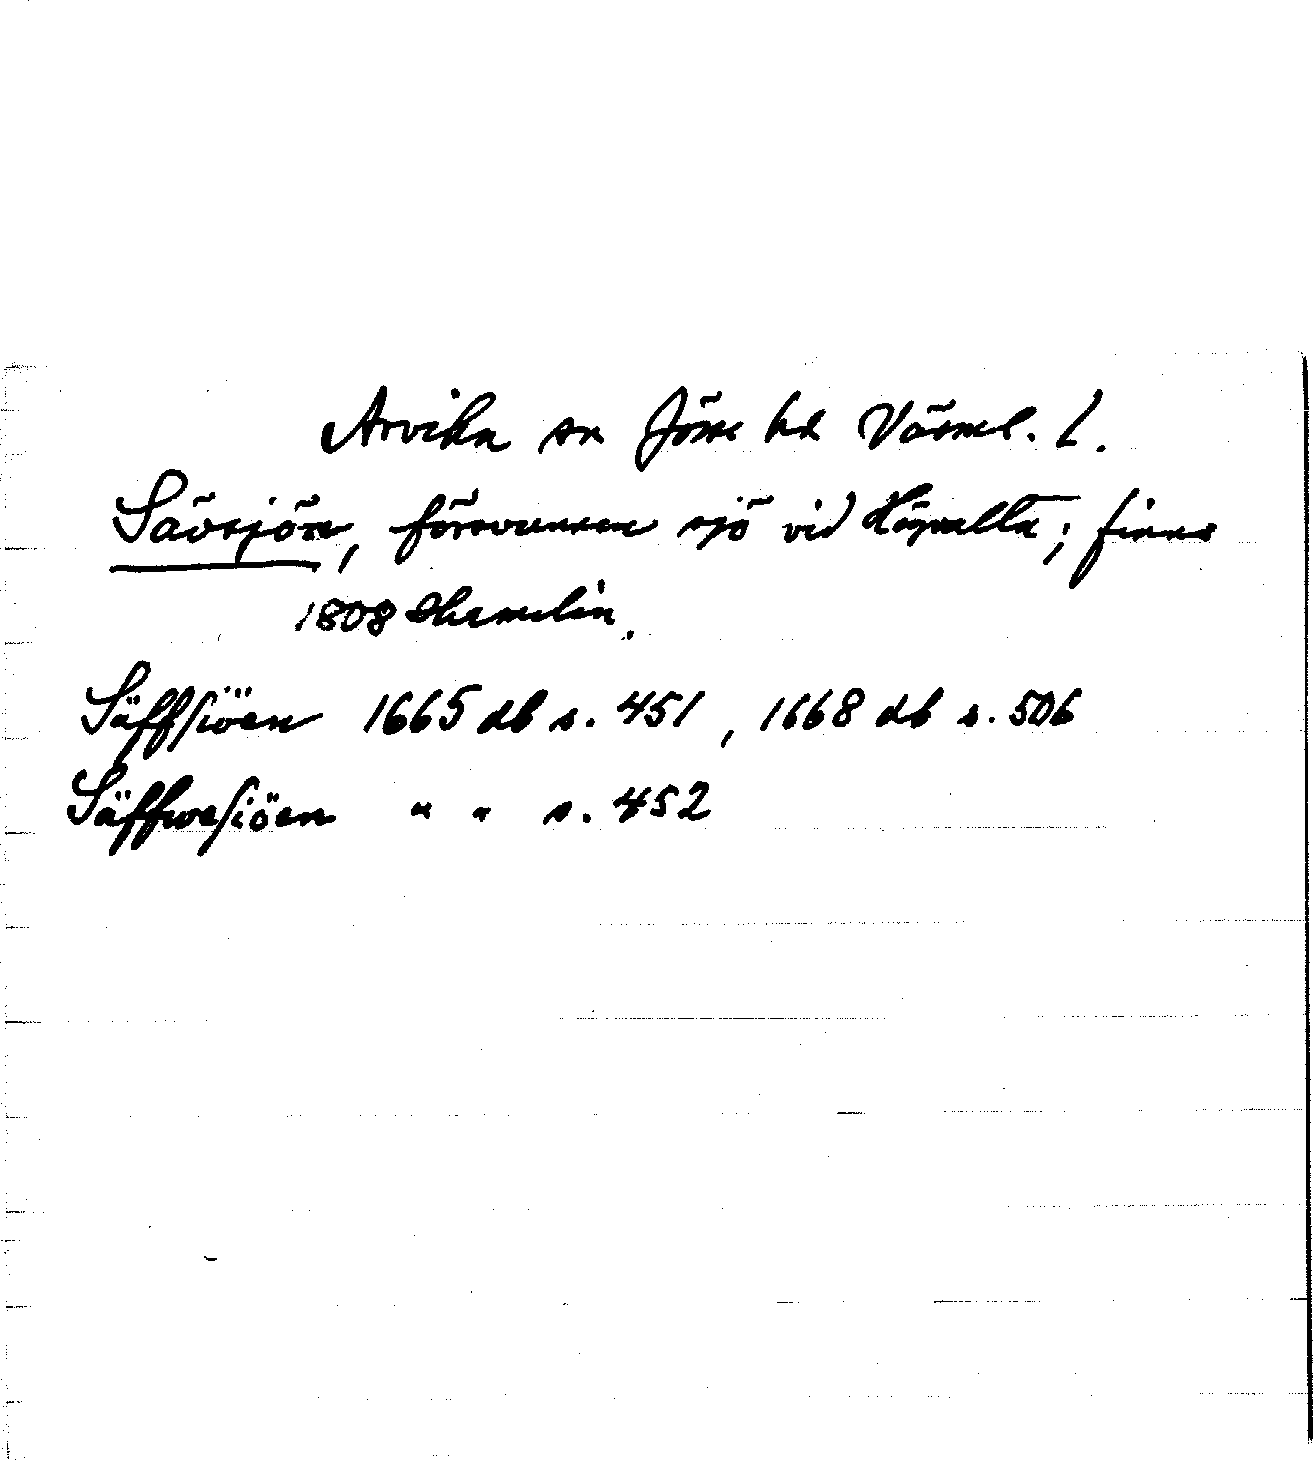 Arvika sn Jösse hd Värml. l.
Sävsjön, försvunnen sjö vid Högvalta; finns
1808 Hermelin.
Säffsiöen 1665 db s. 451, 1668 db s. 506
Säffwesiöen " " s. 452